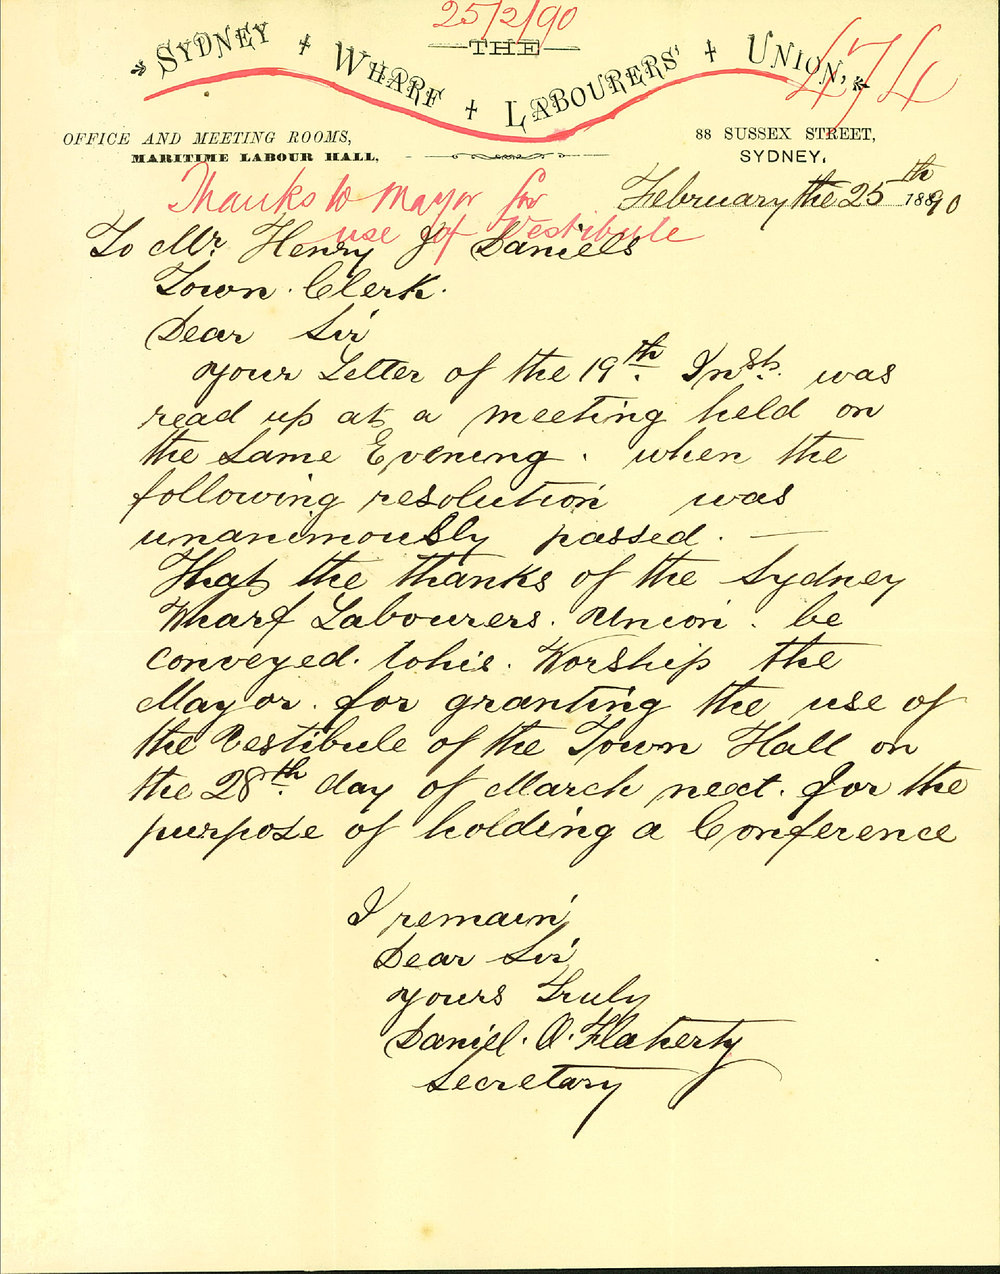 25/2/90
THE
SYDNEY WHARF LABOURERS' UNION,
474
OFFICE AND MEETING ROOMS,
MARITIME LABOUR HALL,
88 SUSSEX STREET,
SYDNEY.
Thanks to Mayor for
use of Vestibule
February the 25th 1890
To Mr. Henry J Daniels
Town Clerk.
Dear Sir
Your Letter of the 19th Inst. was
read up at a meeting held on
the Same Evening. when the
following resolution was
unanimously passed. —
That the thanks of the Sydney
Wharf Labourers. Union. be
conveyed. to his. Worship the
Mayor. for granting the use of
the Vestibule of the Town Hall on
the 28th day of March next. for the
purpose of holding a Conference
I remain
Dear Sir
Yours Truly
Daniel. O. Flaherty
Secretary